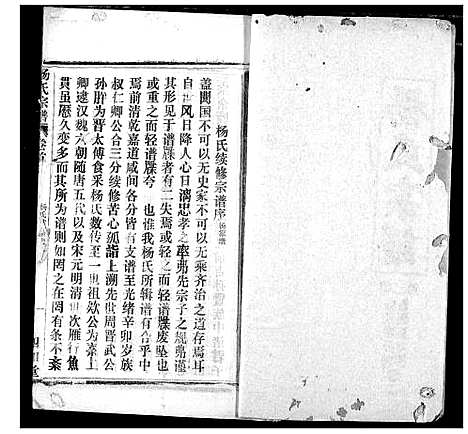 杨氏续修宗谱序
盖闻国不可以无史家不可以无乘齐治之道存焉耳
自风日降人心日漓忠孝之 先宗子之规
其形见于谱牒者有二失焉或轻之而谱牒废坠也
或重之而轻谱牒夸 也惟我杨氏所辑谱有合乎中
焉前清乾嘉道咸间各分皆有支谱至光绪辛卯岁族
叔仁卿公合三分续修苦心孤诣上溯先世周晋武公
孙 为晋太傅食采杨氏数传至一 祖 公为秦上
卿逮汉魏六朝随唐五代以及宋元明清世次雁行鱼
贯虽历久变多而其所为谱则如罔之在罔有条不紊
杨氏宗谱 卷首
杨氏
一
四知堂